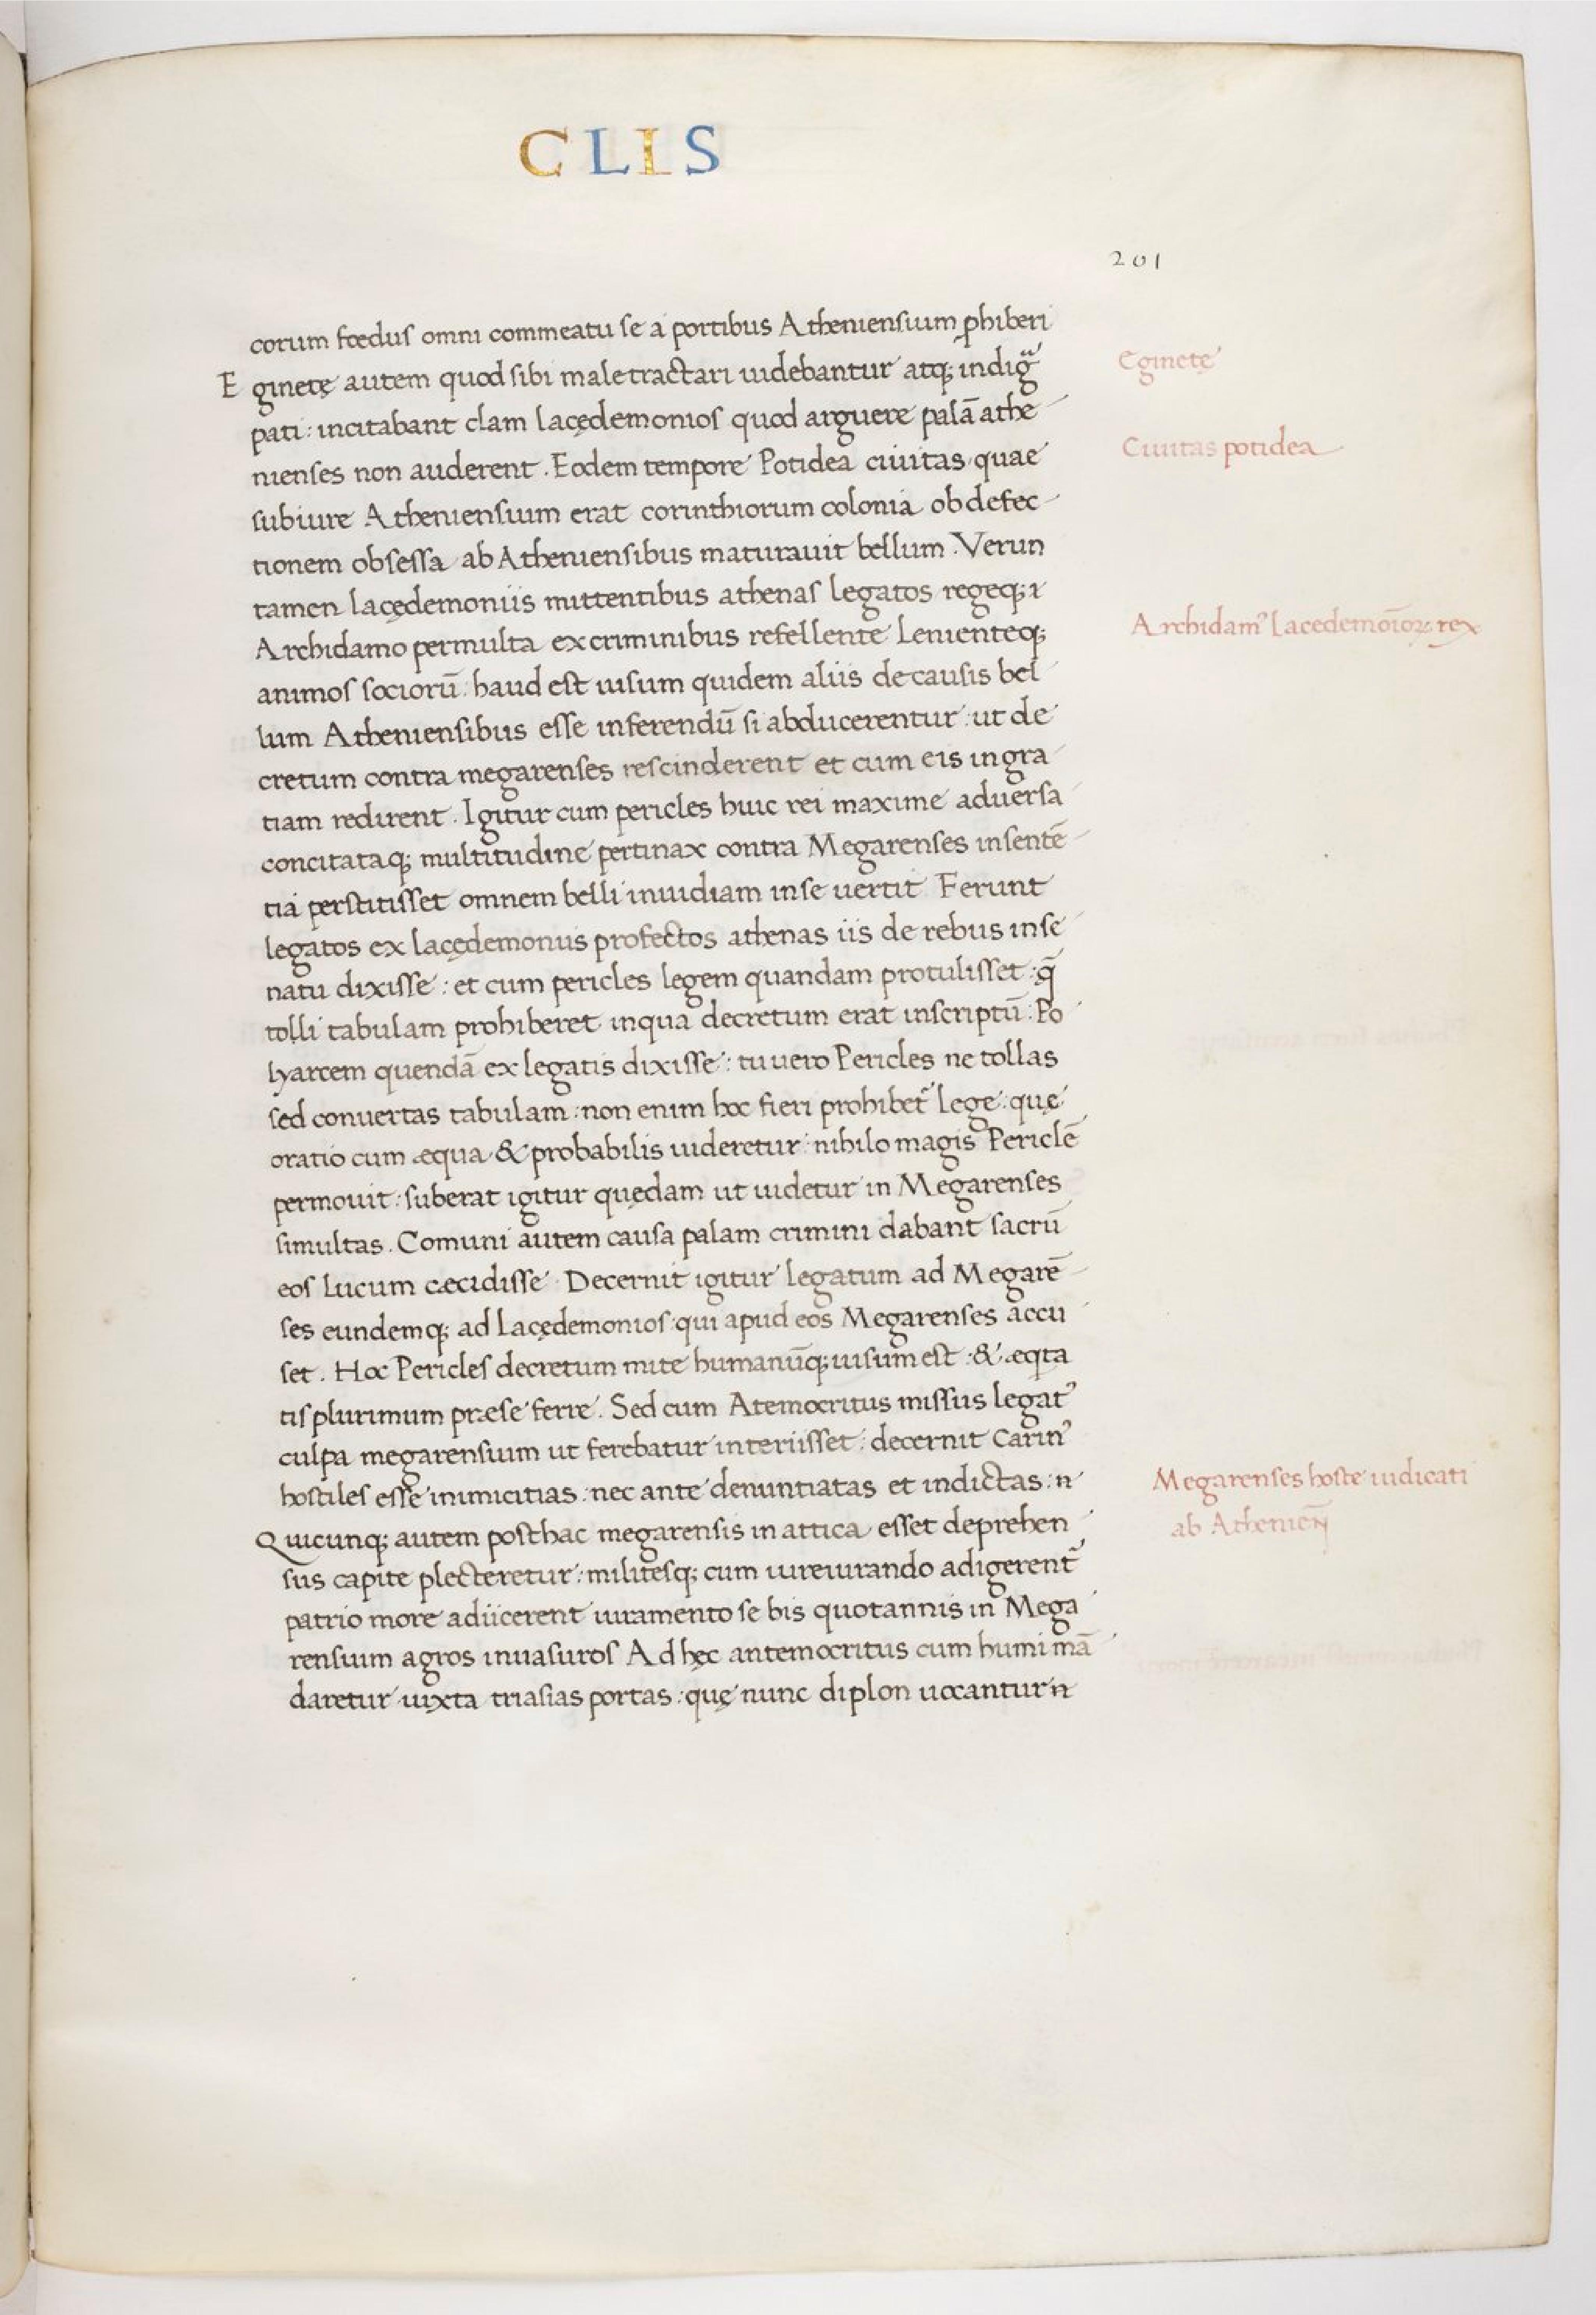 CLIS
201
corum fœdus omni commeatu se a portibus Atheniensium ꝓhiberi
Eginetę autem quod sibi male tractari uidebantur atq; indigᷓ
pati: incitabant clam lacędemonios quod arguere palā athe
nienses non auderent. Eodem tempore Potidea ciuitas quae
sub iure Atheniensium erat corinthiorum colonia ob defec
tionem obsessa ab Atheniensibus maturauit bellum. Verun
tamen lacędemoniis mittentibus athenas legatos regeq;
Archidamo permulta ex criminibus refellente Lenienteq;
animos sociorū: haud est uisum quidem aliis de causis bel
lum Atheniensibus esse inferendū si abducerentur: ut de
cretum contra megarenses rescinderent et cum eis in gra
tiam redirent. Igitur cum pericles huic rei maxime aduersa
concitataq; multitudine pertinax contra Megarenses in sentē
tia perstitisset omnem belli inuidiam in se uertit Ferunt
legatos ex lacędemoniis profectos athenas iis de rebus in se
natu dixisse: et cum pericles legem quandam protulisset: q̄
tolli tabulam prohiberet in qua decretum erat inscriptū: Po
lyarcem quendā ex legatis dixisse: tu uero Pericles ne tollas
sed conuertas tabulam: non enim hoc fieri prohibet᷑ lege: quę
oratio cum æqua & probabilis uideretur: nihilo magis Periclē
permouit: suberat igitur quędam ut uidetur in Megarenses
simultas. Comuni autem causa palam crimini dabant sacrū
eos Lucum cæcidisse. Decernit igitur legatum ad Megarē
ses eundemq; ad Lacędemonios: qui apud eos Megarenses accu
set. Hoc Pericles decretum mite humanūq; uisum est: & æqta
tis plurimum præ se ferre. Sed cum Atemocritus missus legatꝰ
culpa megarensium ut ferebatur interiisset: decernit Carinꝰ
hostiles esse inimicitias: nec ante denuntiatas et indictas:
Quicunq; autem posthac megarensis in attica esset deprehen
sus capite plecteretur: militesq; cum iureiurando adigerent᷑
patrio more adiicerent iuramento se bis quotannis in Mega
rensium agros inuasuros Ad hęc antemocritus cum humi mā
daretur iuxta triasias portas: quę nunc diplon uocantur
Eginetę
Ciuitas potidea
Archidamꝰ lacedemōioꝝ rex
Megarenses hoste iudicati
ab Athenien̄